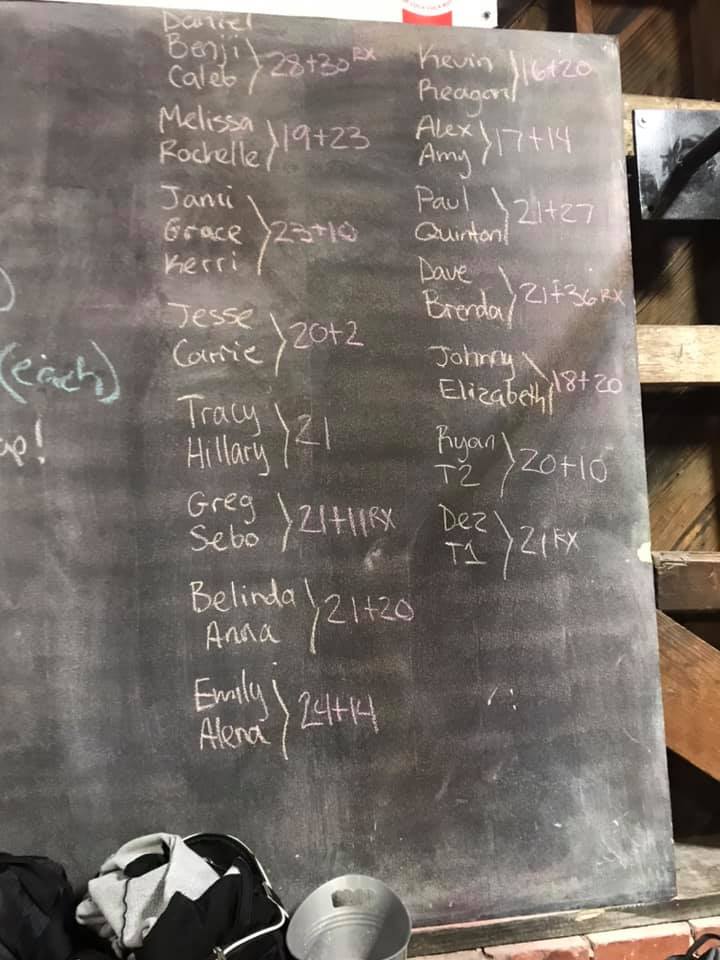 Daniel
Benji
Caleb
28+30 RX
Melissa
Rochelle
19+23
Jami
Grace
Kerri
23+10
Jesse
Carrie
20+2
Tracy
Hillary
21
Greg
Sebo
21+11 RX
Belinda
Anna
21+20
Emily
Alena
24+14
Kevin
Reagan
16+20
Alex
Amy
17+14
Paul
Quinton
21+27
Dave
Brenda
21+36 RX
Johnny
Elizabeth
18+20
Ryan
T2
20+10
Dez
T1
21 RX
(each)